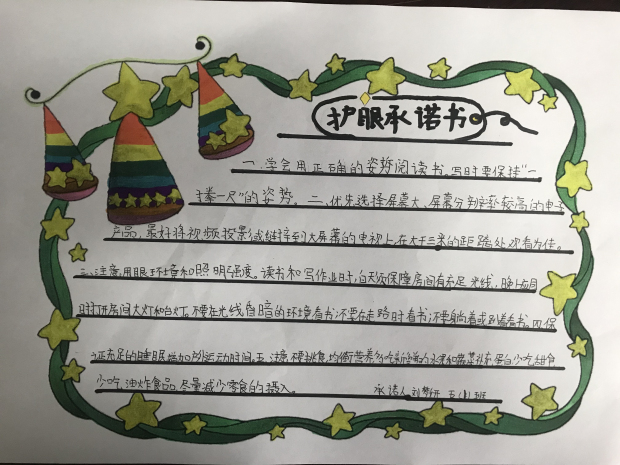 护眼承诺书
一、学会用正确的姿势阅读书,写时要保持"一
寸拳一尺"的姿势。二、优先选择屏幕大、屏幕分辨率较高的电子
产品,最好将视频投影或链接到大屏幕的电视上,在大于三米的距离处观看为佳。
三、注意用眼环境和照明强度。读书和写作业时,白天须保障房间有充足光线,晚上应同
时打开房间大灯和台灯。不要在光线昏暗的环境看书;不要在走路时看书;不要躺着或趴着看书。四、保
证充足的睡眠,增加户外运动时间。五、注意不要挑食,均衡营养,多吃新鲜的水果和蔬菜,补蛋白少吃甜食,
少吃油炸食品,尽量减少零食的摄入。
承诺人 班